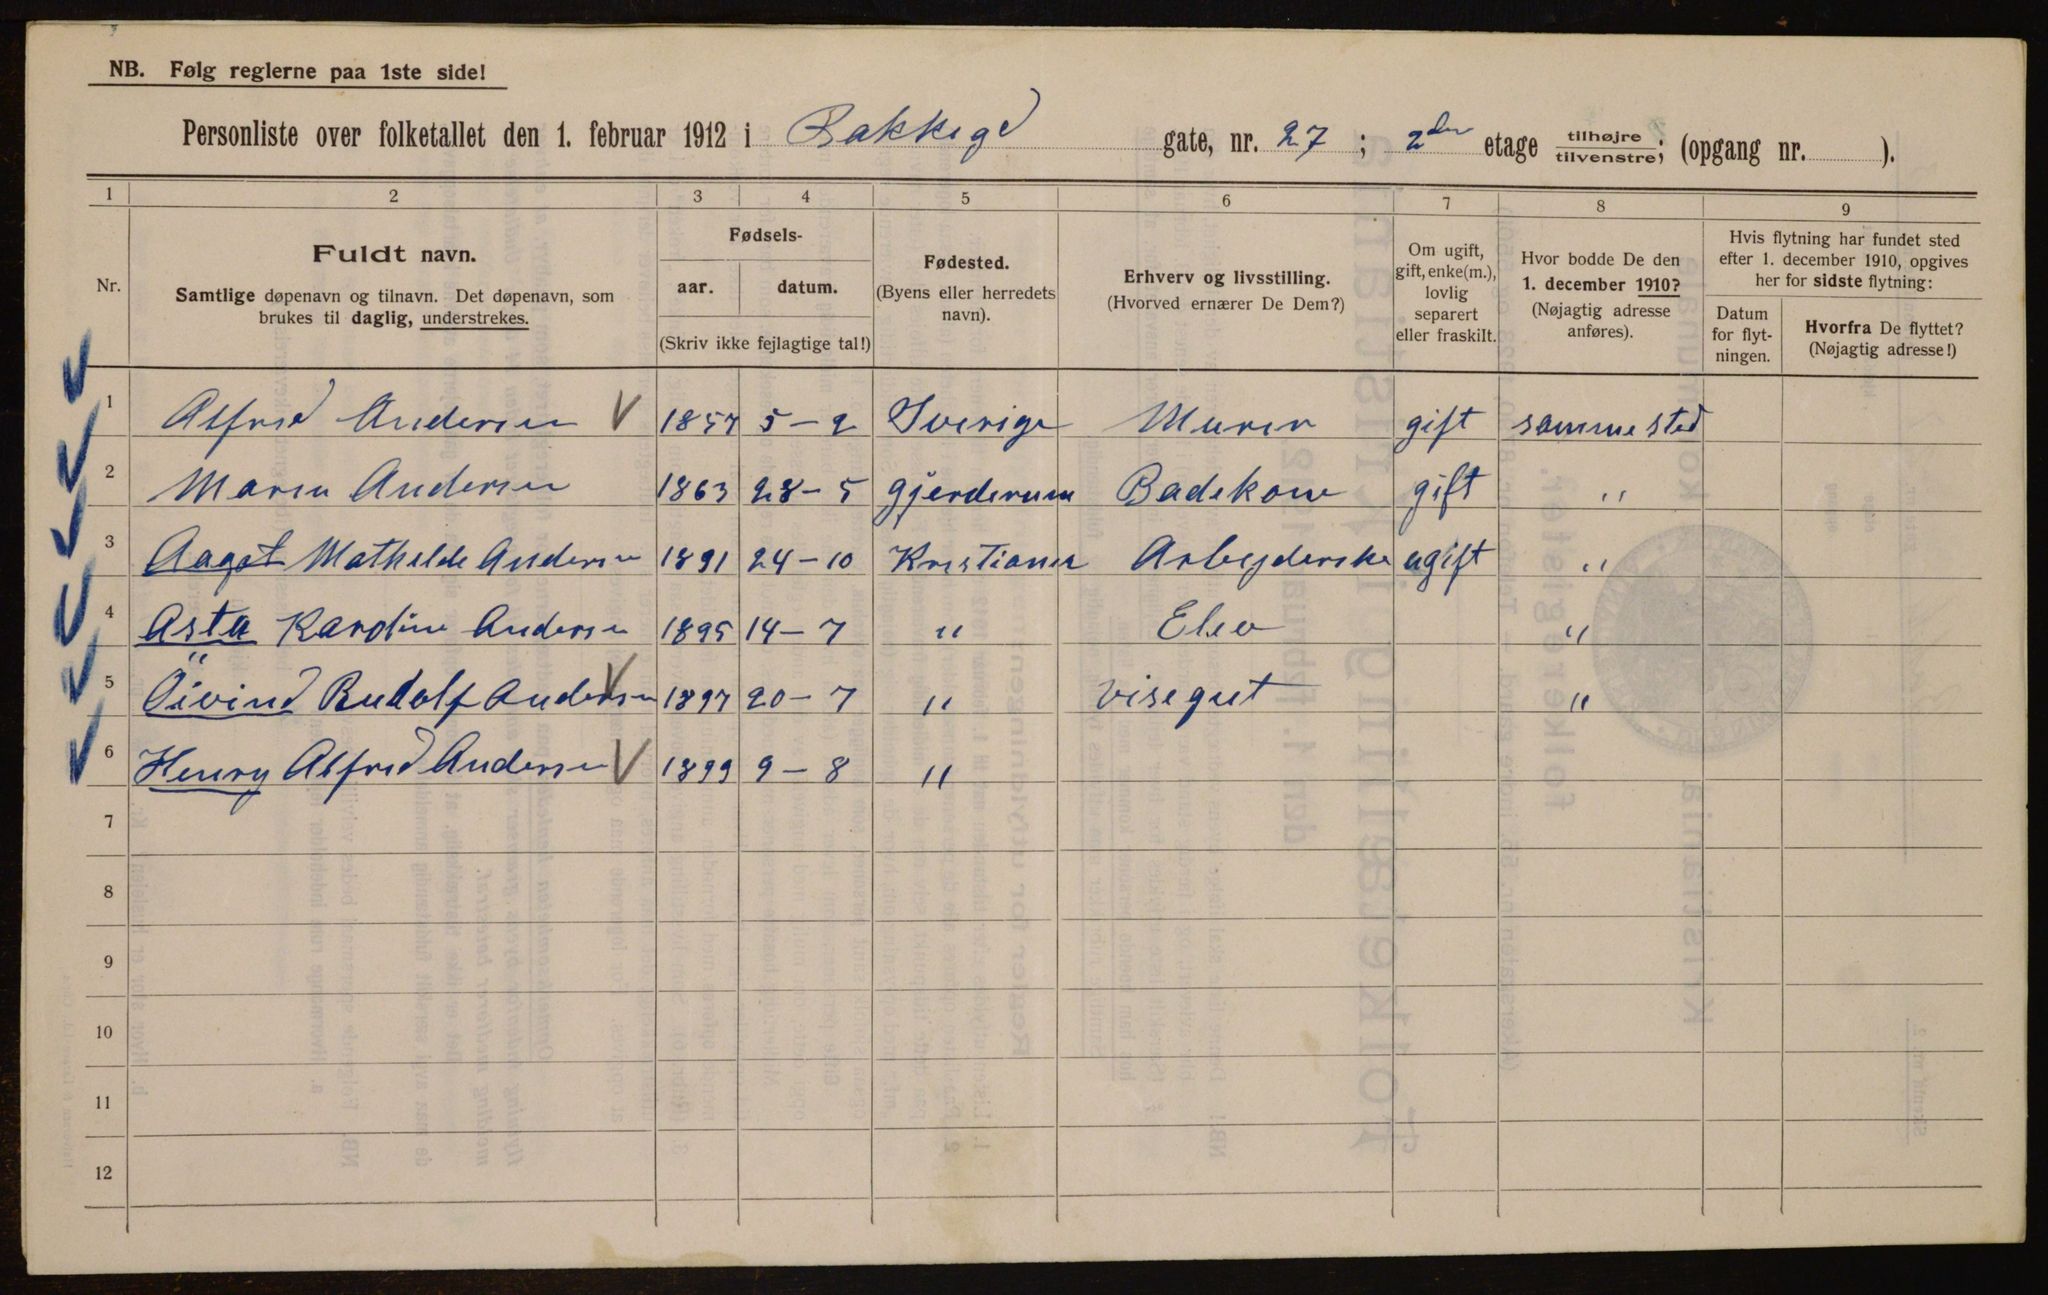 NB. Følg reglerne paa 1ste side!
Personliste over folketallet den 1. februar 1912 i Bakkegd gate, nr. 27 ; 2den etage tilhøjre/tilvenstre; (opgang nr. ).
1 2 3 4 5 6 7 8 9
Nr.
Fuldt navn.
Samtlige døpenavn og tilnavn. Det døpenavn, som
brukes til daglig, understrekes.
Fødsels-
aar. datum.
(Skriv ikke fejlagtige tal!)
Fødested.
(Byens eller herredets
navn).
Erhverv og livsstilling.
(Hvorved ernærer De Dem?)
Om ugift,
gift, enke(m.),
lovlig
separert
eller fraskilt.
Hvor bodde De den
1. december 1910?
(Nøjagtig adresse
anføres).
Hvis flytning har fundet sted
efter 1. december 1910, opgives
her for sidste flytning:
Datum
for flyt-
ningen.
Hvorfra De flyttet?
(Nøjagtig adresse!)
1 Alfred Andersen 1857 5–2 Sverige Murer gift samme sted
2 Maren Andersen 1863 28–5 Gjerderum Badekone gift "
3 Aagot Mathilde Andersen 1891 24–10 Kristiania Arbejderske ugift "
4 Asta Karoline Andersen 1895 14–7 " Elev "
5 Öivind Rudolf Andersen 1897 20–7 " Visegut "
6 Henry Alfred Andersen 1899 9–8 "
7
8
9
10
11
12